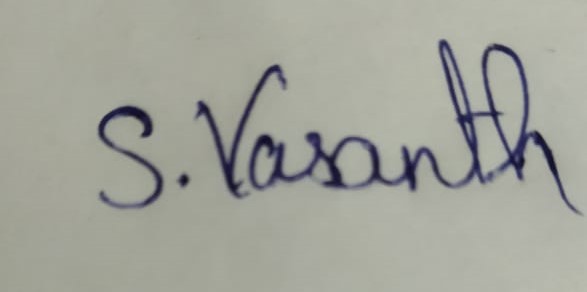 S. Vasanth